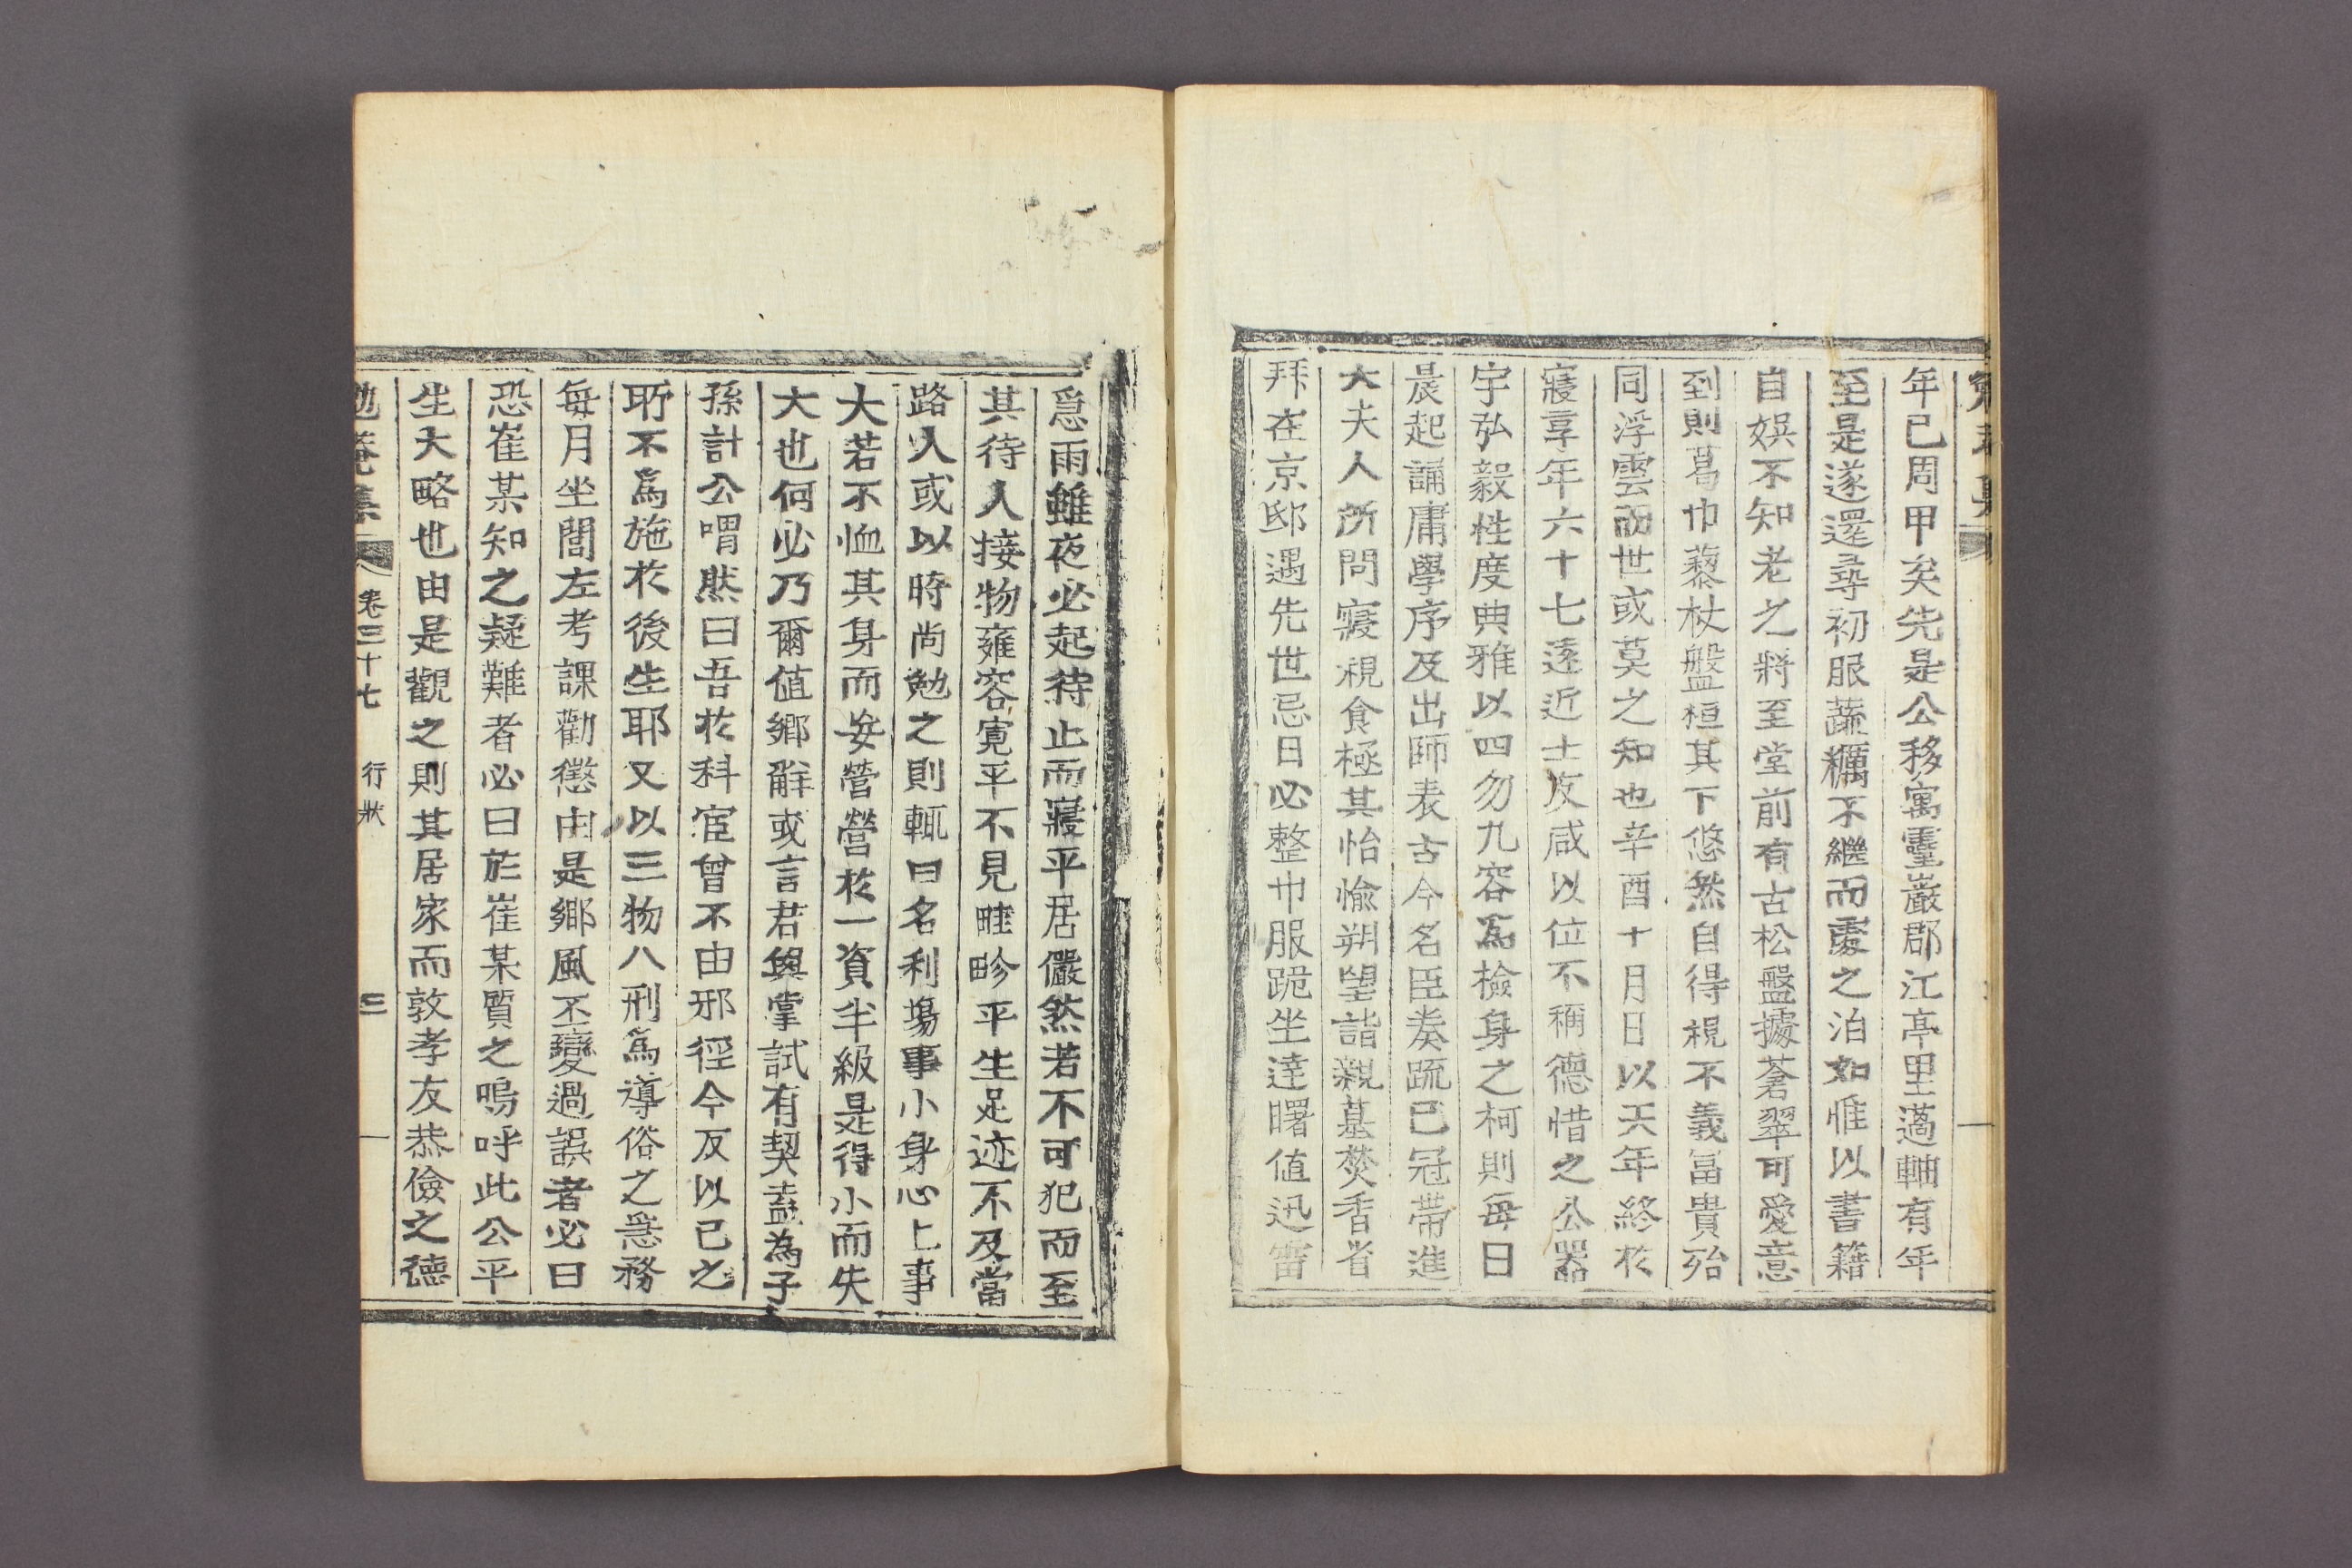 年已周甲矣先是公移寓靈巖郡江亭里薖軸有年
至是遂還尋初服蔬糲不繼而處之泊如惟以書籍
自娛不知老之將至堂前有古松盤據蒼翠可愛意
到則葛巾藜杖盤桓其下悠然自得視不義富貴殆
同浮雲而世或莫之知也辛酉十月日以天年終於
寢享年六十七遠近士友咸以位不稱德惜之公器
宇弘毅性度典雅以四勿九容爲檢身之柯則每日
晨起誦庸學序及出師表古今名臣奏疏已冠帶進
大夫人所問寢視食極其怡愉朔望詣親墓焚香省
拜在京邸遇先世忌日必整巾服跪坐達曙値迅雷
急雨雖夜必起待止而寢平居儼然若不可犯而至
其待人接物雍容寬平不見畦畛平生足迹不及當
路人或以時尙勉之則輒曰名利塲事小身心上事
大若不恤其身而妄營營於一資半級是得小而失
大也何必乃爾値鄕解或言君與掌試有契盍為子
孫計公喟然曰吾於科宦曾不由邪徑今反以己之
所不爲施於後生耶又以三物八刑爲導俗之急務
每月坐閭左考課勸懲由是鄕風丕變過誤者必曰
恐崔某知之疑難者必曰於崔某質之嗚呼此公平
生大略也由是觀之則其居家而敦孝友恭儉之德
卷三十七 行狀 三